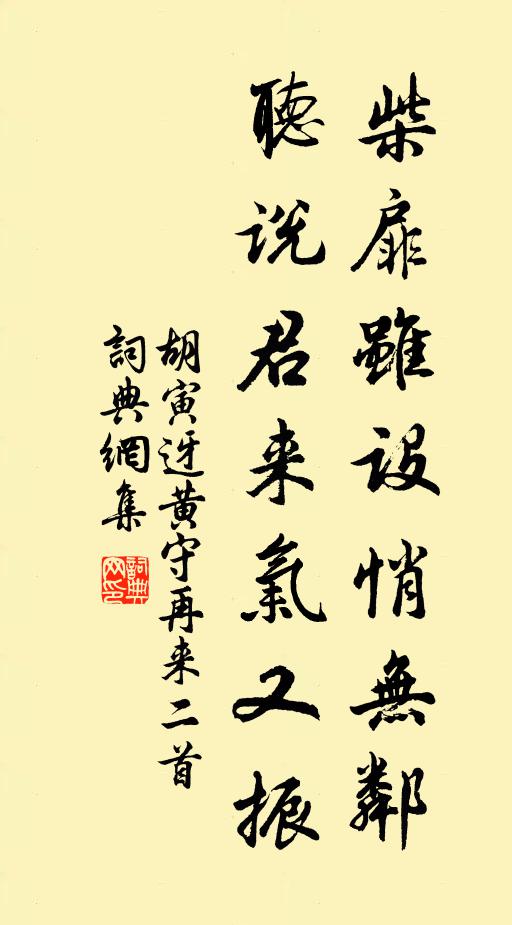 柴扉雖設悄無鄰
聽说君来氣又振
胡寅迓黄守再来二首
詞典網集
詞典网印